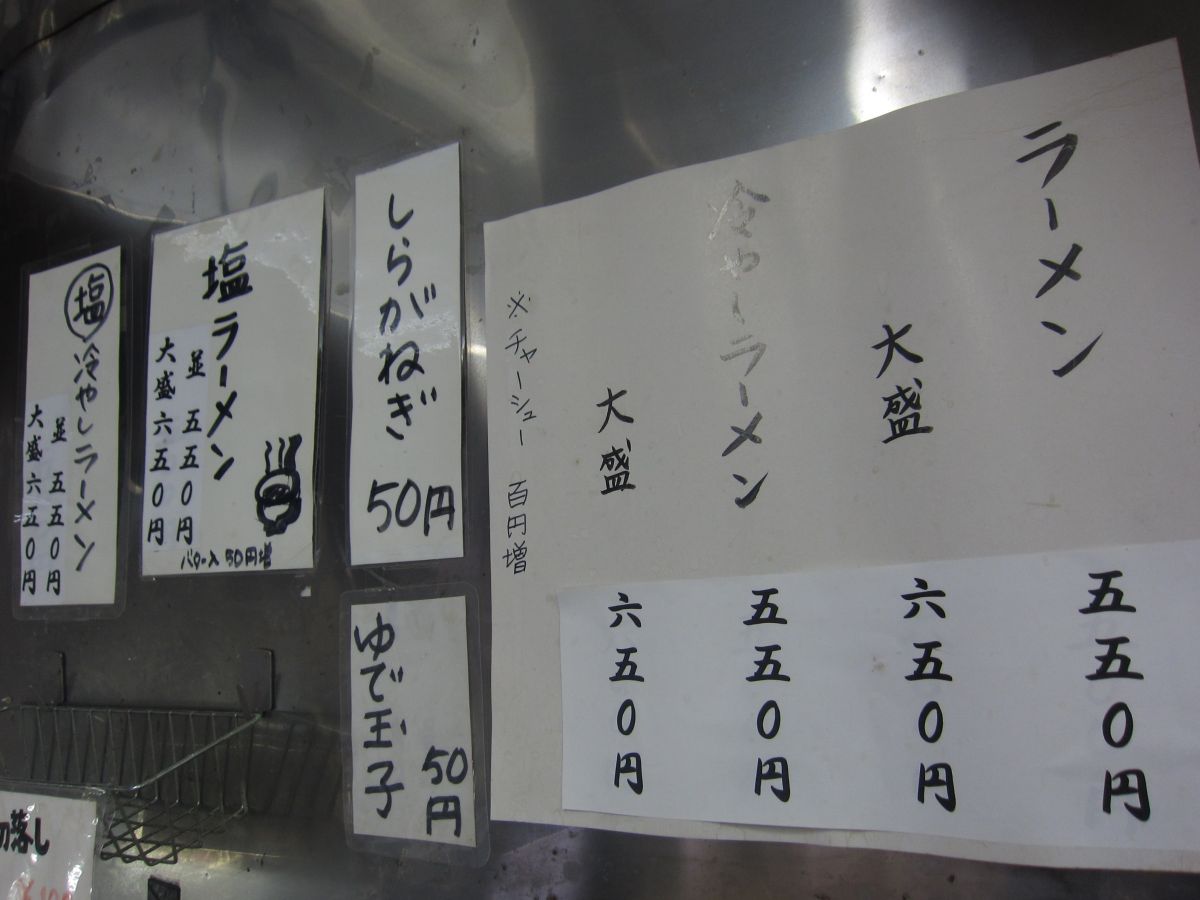 ラーメン 五五〇円
大盛 六五〇円
冷やしラーメン 五五〇円
大盛 六五〇円
※チャーシュー 百円増
しらがねぎ 50円
ゆで玉子 50円
塩ラーメン
並 五五〇円
大盛 六五〇円
バター入 50円増
塩 冷やしラーメン
並 五五〇円
大盛 六五〇円
落し